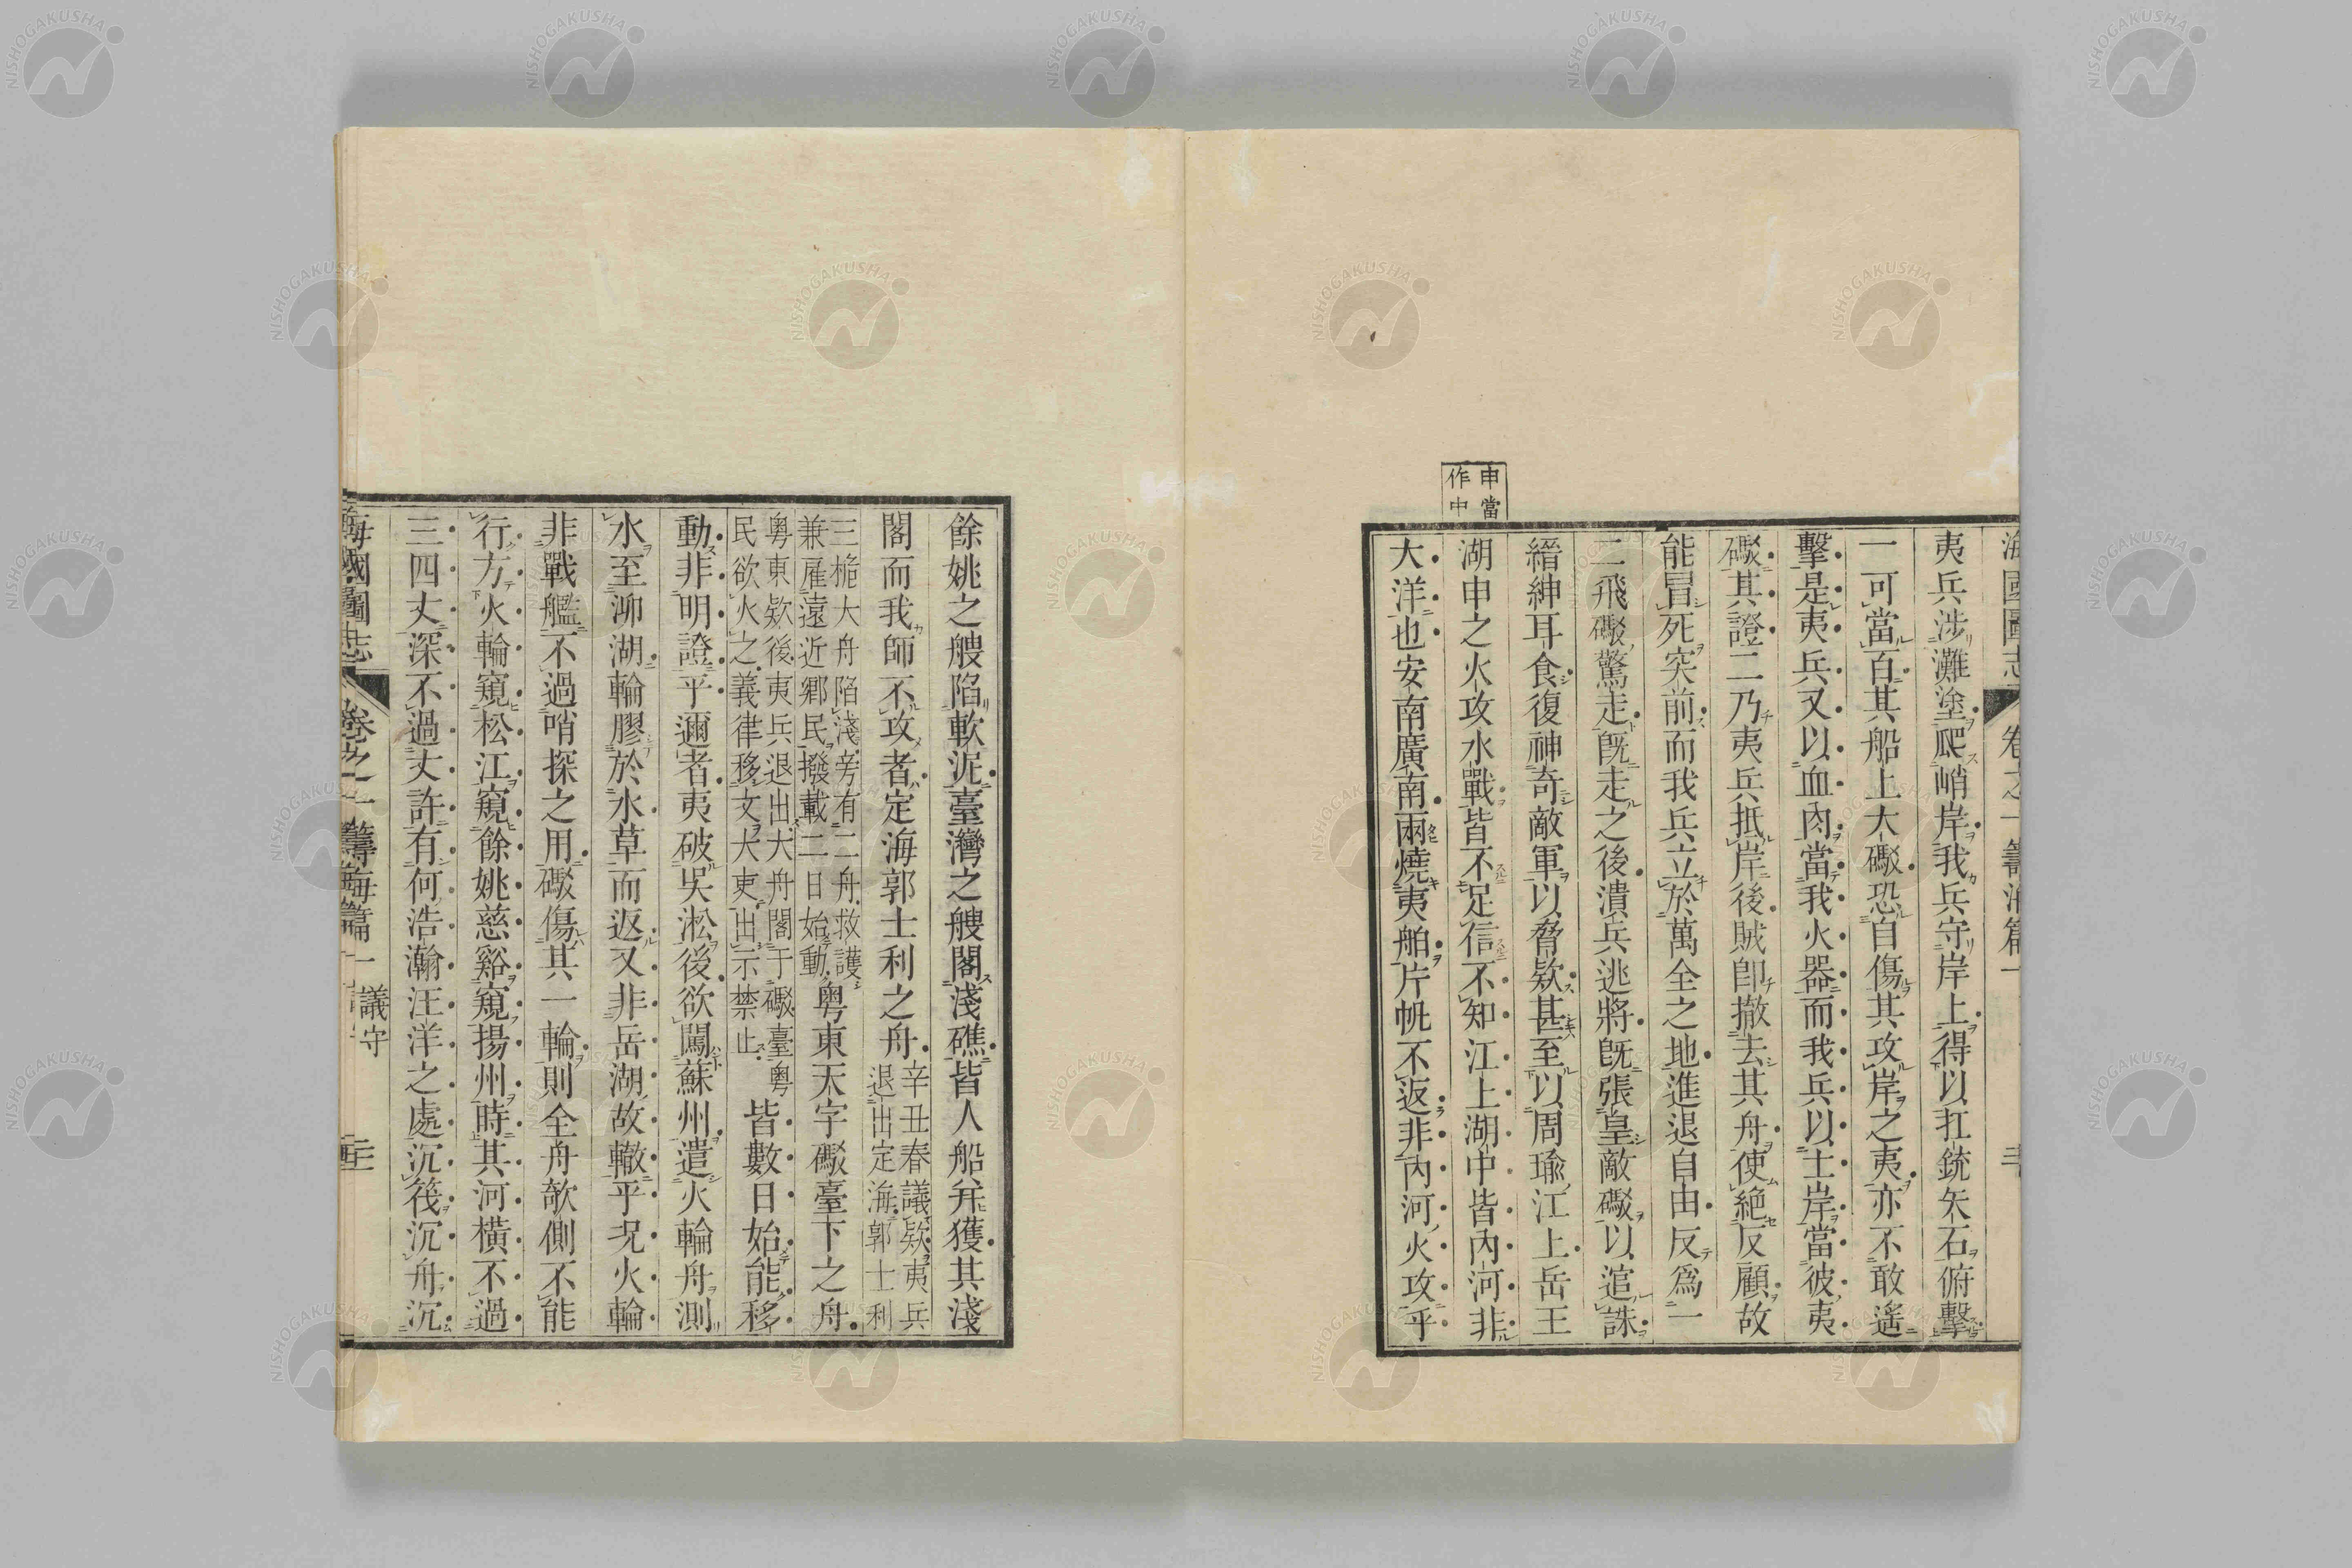 海國圖志 卷之一 籌海篇一
夷兵涉灘塗爬峭岸我兵守岸上得以扛銃矢石俯擊
一可當百其船上大礮恐自傷其攻岸之夷亦不敢遙
擊是夷兵又以血肉當我火器而我兵以土岸當彼夷
礮其證二乃夷兵抵岸後賊卽撤去其舟使絶反顧故
能冒死突前而我兵立於萬全之地進退自由反爲一
二飛礮驚走旣走之後潰兵逃將旣張皇敵礮以逭誅
縉紳耳食復神奇敵軍以脅欵甚至以周瑜江上岳王
湖申之火攻水戰皆不足信不知江上湖中皆內河非
大洋也安南廣南兩燒夷舶片帆不返非內河火攻乎
申當
作中
餘姚之艘陷軟泥臺灣之艘閣淺礁皆人船幷獲其淺
閣而我師不攻者定海郭士利之舟辛丑春議欵夷兵
退出定海郭士利
三桅大舟陷淺旁有二舟救護
兼雇遠近鄉民撥載二日始動粵東天字礮臺下之舟
粵東欵後夷兵退出大舟閣于礮臺粵
民欲火之義律移文大吏出示禁止皆數日始能移
動非明證乎邇者夷破吳淞後欲闖蘇州遣火輪舟測
水至泖湖輪膠於水草而返又非岳湖故轍乎況火輪
非戰艦不過哨探之用礮傷其一輪則全舟欹側不能
行方火輪窺松江窺餘姚慈谿窺揚州時其河橫不過
三四丈深不過丈許有何浩瀚汪洋之處沉筏沉舟沉
海國圖志 卷之一 籌海篇一 議守
NISHOGAKUSHA